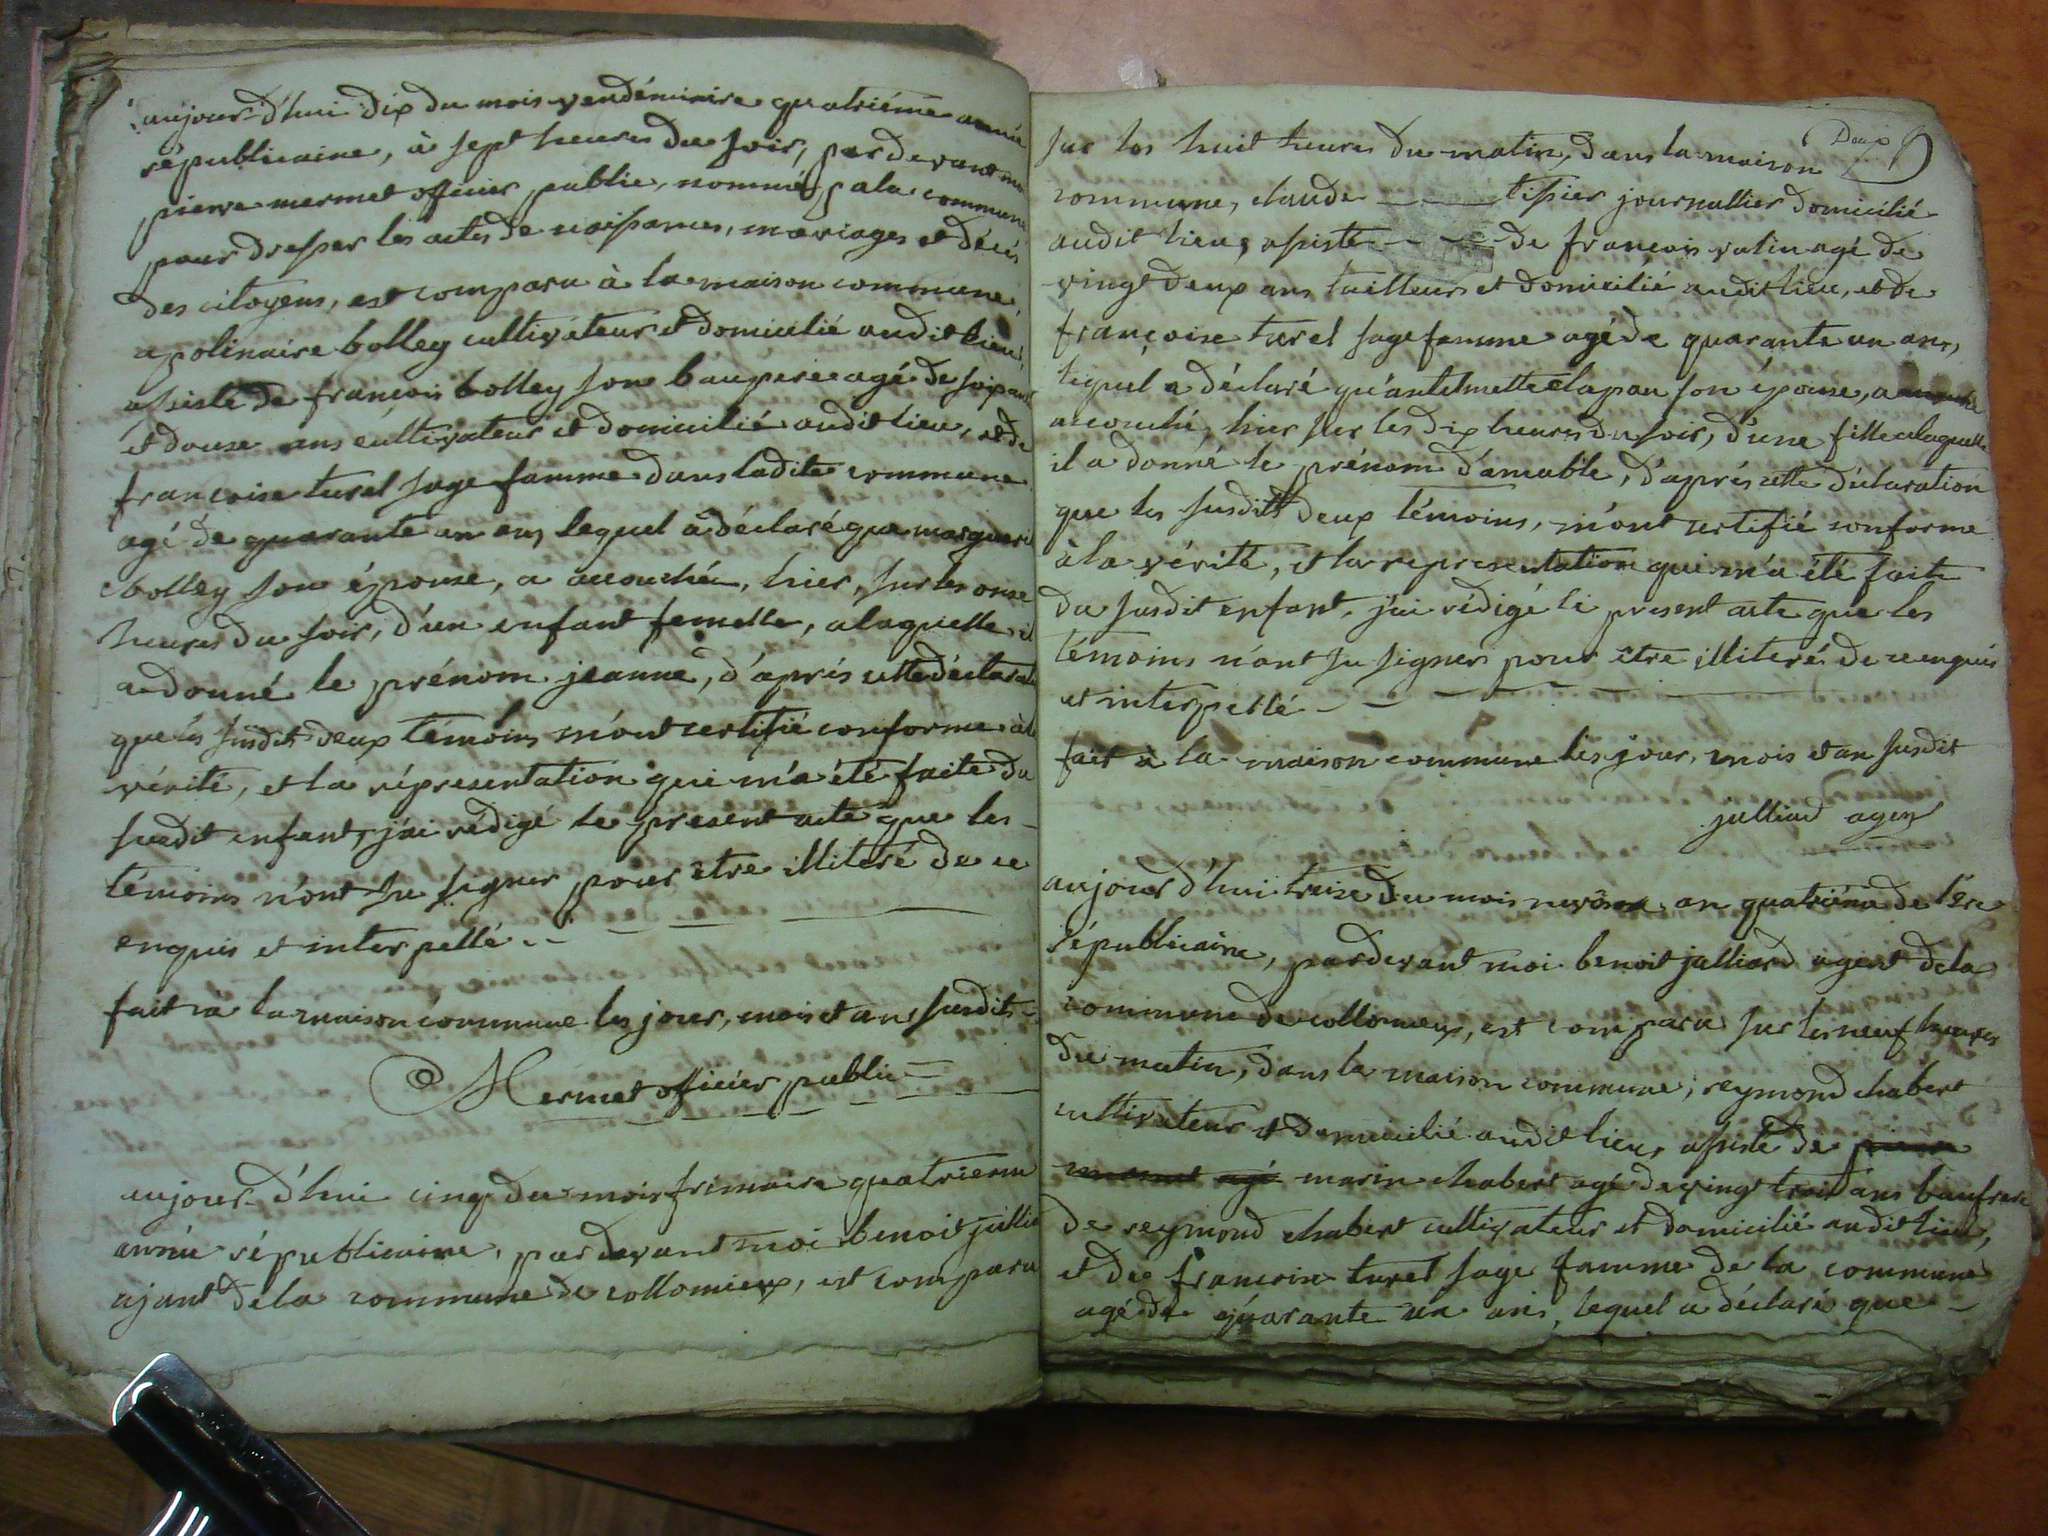 aujour d'hui dix du mois vendémiaire quatriéme année
républicaine, à sept heures du soir, par devant moi
pierre mermet officier public, nommé, pala commune
pour dresser les actes de naissances, mariages et décés
des citoyens, est comparu à la maison commune
apolinaire bolley cultivateur et domicilié audit lieu,
assisté de françois bolley son baupere agé de soixante
et douse ans cultivateur et domicilié audit lieu, et de
francoise turel sage famme dans ladite commune
agé de quarante un ans lequel à déclaré que marguerit
bolley son épouse, a accouchée, hier, sur les onse
heures du soir, d'un enfant femelle, alaquelle il
adonné le prénom jeanne, d'aprés cette déclarat
que les susdits deux témoins m'ont certifié conforme àla
vérité, et la répresentation qui m'a été faite du
susdit enfant, j'ai rédigé le present acte que les
témoins n'ont su signer pour être illiteré de ce
enquis et interpellé
fait à la maison commune les jour, mois et an susdits
Mermet officier public
aujour d'hui cinq du mois frimaire quatrieme
année républicaine, pardevant moi benoit jullia
ajant dela commune de collomieux, est comparu
Deux
sur les huit heures du matin, dans la maison
commune, claude tissier journallier domicilié
audit lieu, assisté de françois valin agé de
vingt deux ans tailleur et domicilié audit lieu, et de
françoise turel sage femme agé de quarante un ans,
lequel a déclaré qu'antelmette son épouse, a
accouché, hier sur les dix heures du soir, d'une fille alaquelle
il a donné le prénom d'ameable, d'aprés cette déclaration
que les susdits deux témoins, m'ont certifié conforme
à la vérité, et la representation qui m'a été faite
du susdit enfant, j'ai rédigé le present acte que les
témoins n'ont su signer pour être illiteré de ce enquis
et interpellé
fait à la maison commune les jour, mois et an susdit
julliard agent
aujour d'hui treize du mois nivôse an quatriéme de l'ére
républicaine, pardevant moi benoit julliard agent dela
commune de collomieux, est comparu sur les neuf heures
du matin, dans la maison commune, reymond chabert
cultivateur et domicilié audit lieu, assisté de
marin chabert agé de vingt trois ans baufrere
de reymond chabert cultivateur et domicilié audit lieu,
et de francoise turel sage famme de la commune
agé de quarante un ans, lequel a déclaré que